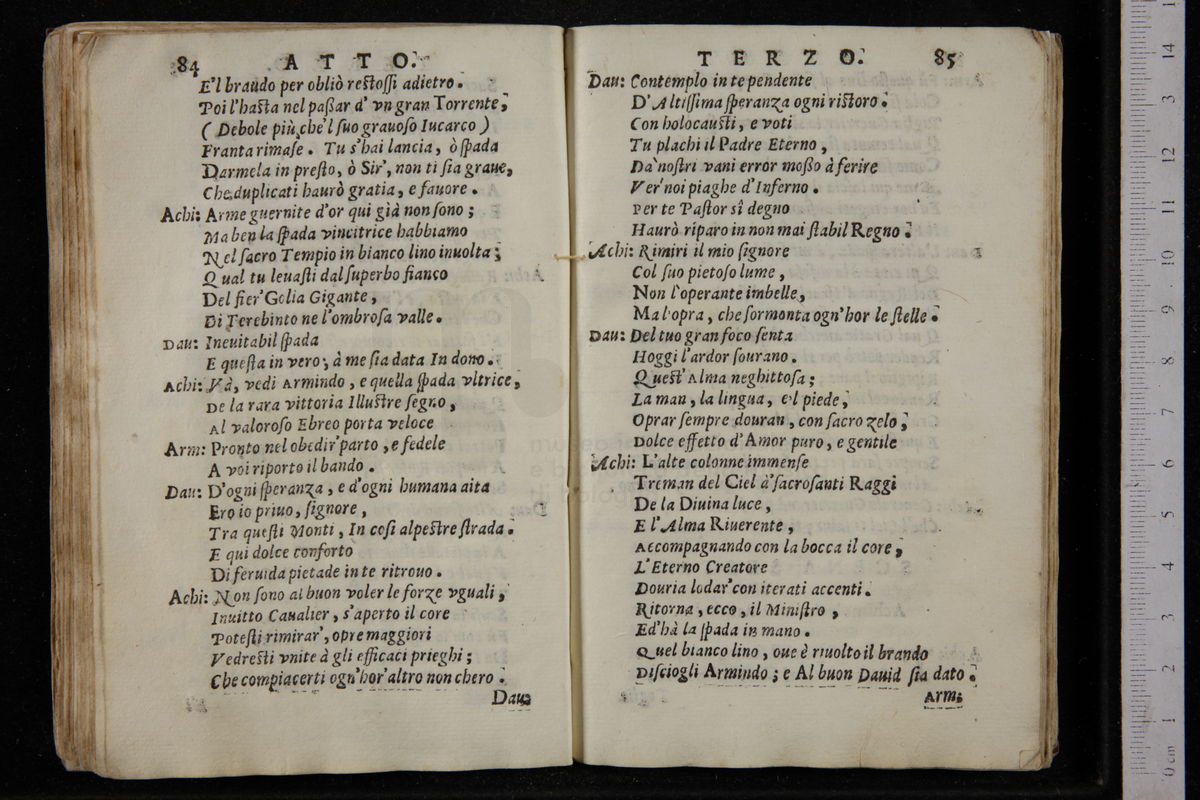 84 ATTO.
E'l brando per obliò restossi adietro.
Poi l'hasta nel paßar d' vn gran Torrente,
( Debole più che'l suo grauoso Iucarco )
Franta rimase. Tu s'hai lancia, ò spada
Darmela in presto, ò Sir', non ti sia graue,
Che duplicati haurò gratia, e fauore.
Achi: Arme guernite d'or qui già non sono;
Ma ben la spada vincitrice habbiamo
Nel sacro Tempio in bianco lino inuolta;
Qual tu leuasti dal superbo fianco
Del fier' Golia Gigante,
Di Terebinto ne l'ombrosa valle.
Dau: Ineuitabil spada
E questa in vero; à me sia data In dono.
Achi: Và, vedi Armindo, e quella spada vltrice,
De la rara vittoria Illustre segno,
Al valoroso Ebreo porta veloce
Arm: Pronto nel obedir' parto, e fedele
A voi riporto il bando.
Dau: D'ogni speranza, e d'ogni humana aita
Ero io priuo, signore,
Tra questi Monti, In cosi alpestre strada.
E qui dolce conforto
Di feruida pietade in te ritrouo.
Achi: Non sono al buon voler le forze vguali,
Inuitto Caualier, s'aperto il core
Potesti rimirar', opre maggiori
Vedresti vnite à gli efficaci prieghi;
Che compiacerti ogn'hor altro non chero.
Dau:
TERZO. 85
Dau: Contemplo in te pendente
D'Altissima speranza ogni ristoro.
Con holocausti, e voti
Tu plachi il Padre Eterno,
Da' nostri vani error moßo à ferire
Ver' noi piaghe d'Inferno.
Per te Pastor sì degno
Haurò riparo in non mai stabil Regno.
Achi: Rimiri il mio signore
Col suo pietoso lume,
Non l'operante imbelle,
Ma l'opra, che sormonta ogn'hor le stelle.
Dau: Del tuo gran foco senta
Hoggi l'ardor sourano.
Quest' Alma neghittosa;
La man, la lingua, e'l piede,
Oprar sempre douran, con sacro zelo;
Dolce effetto d'Amor puro, e gentile
Achi: L'alte colonne immense
Treman del Ciel à' sacrosanti Raggi
De la Diuina luce,
E l'Alma Riuerente,
Accompagnando con la bocca il core,
L'Eterno Creatore
Douria lodar' con iterati accenti.
Ritorna, ecco, il Ministro,
Ed'hà la spada in mano.
Quel bianco lino, oue è riuolto il brando
Disciogli Armindo; e Al buon Dauid sia dato.
Arm: